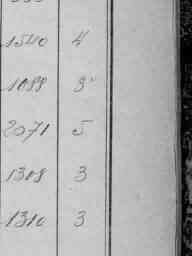 1540 4
1088 3
2071 5
1308 3
1310 3